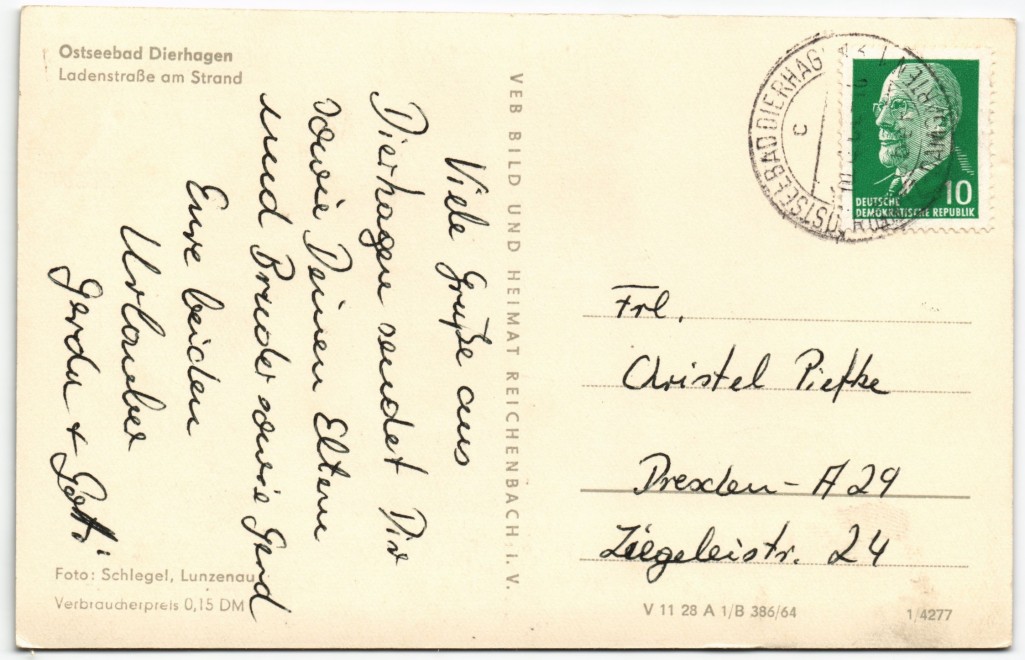 Ostseebad Dierhagen
Ladenstraße am Strand
Viele Grüße aus
Dierhagen sendet Dir
sowie Deinen Eltern
und Bruder sowie Gerd
Eure beiden
Urlauber
Gerda + Gotti
Foto: Schlegel, Lunzenau
Verbraucherpreis 0,15 DM
VEB BILD UND HEIMAT REICHENBACH i. V.
OSTSEEBAD DIERHAG
c
DEUTSCHE
DEMOKRATISCHE REPUBLIK
10
Frl.
Christel Piefke
Dresden - A 29
Ziegeleistr. 24
V 11 28 A 1/B 386/64
1/4277